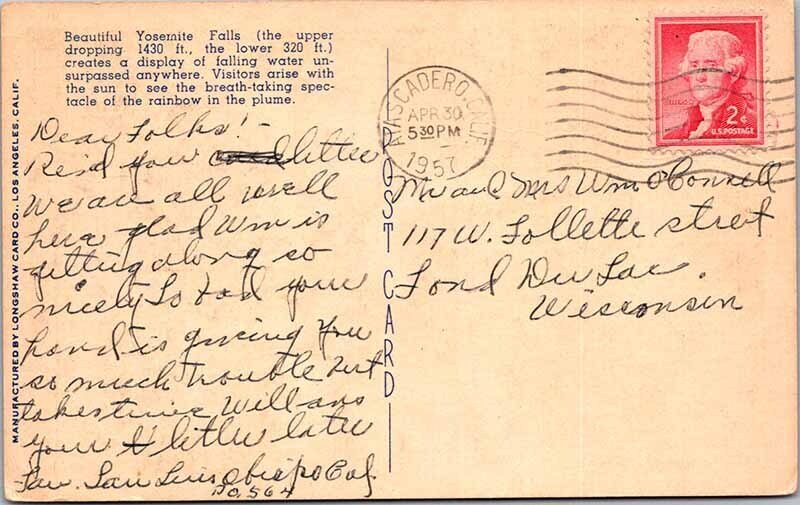 Beautiful Yosemite Falls (the upper
dropping 1430 ft., the lower 320 ft.)
creates a display of falling water un-
surpassed anywhere. Visitors arise with
the sun to see the breath-taking spec-
tacle of the rainbow in the plume.
MANUFACTURED BY LONGSHAW CARD CO., LOS ANGELES, CALIF.
Dear Folks! -
Recd your letter
we are all well
here glad Wm is
getting along so
nicely to bad your
hand is giving you
so much trouble but
takes time will ans
your letter later
San Luis Obispo Cal
PO, 564
POST CARD
ATASCADERO, CALIF.
APR 30
5 30 PM
1957
2¢
U.S. POSTAGE
Mr and Mrs Wm O'Connell
117 W. Follette street
Fond Du Lac.
Wisconsin